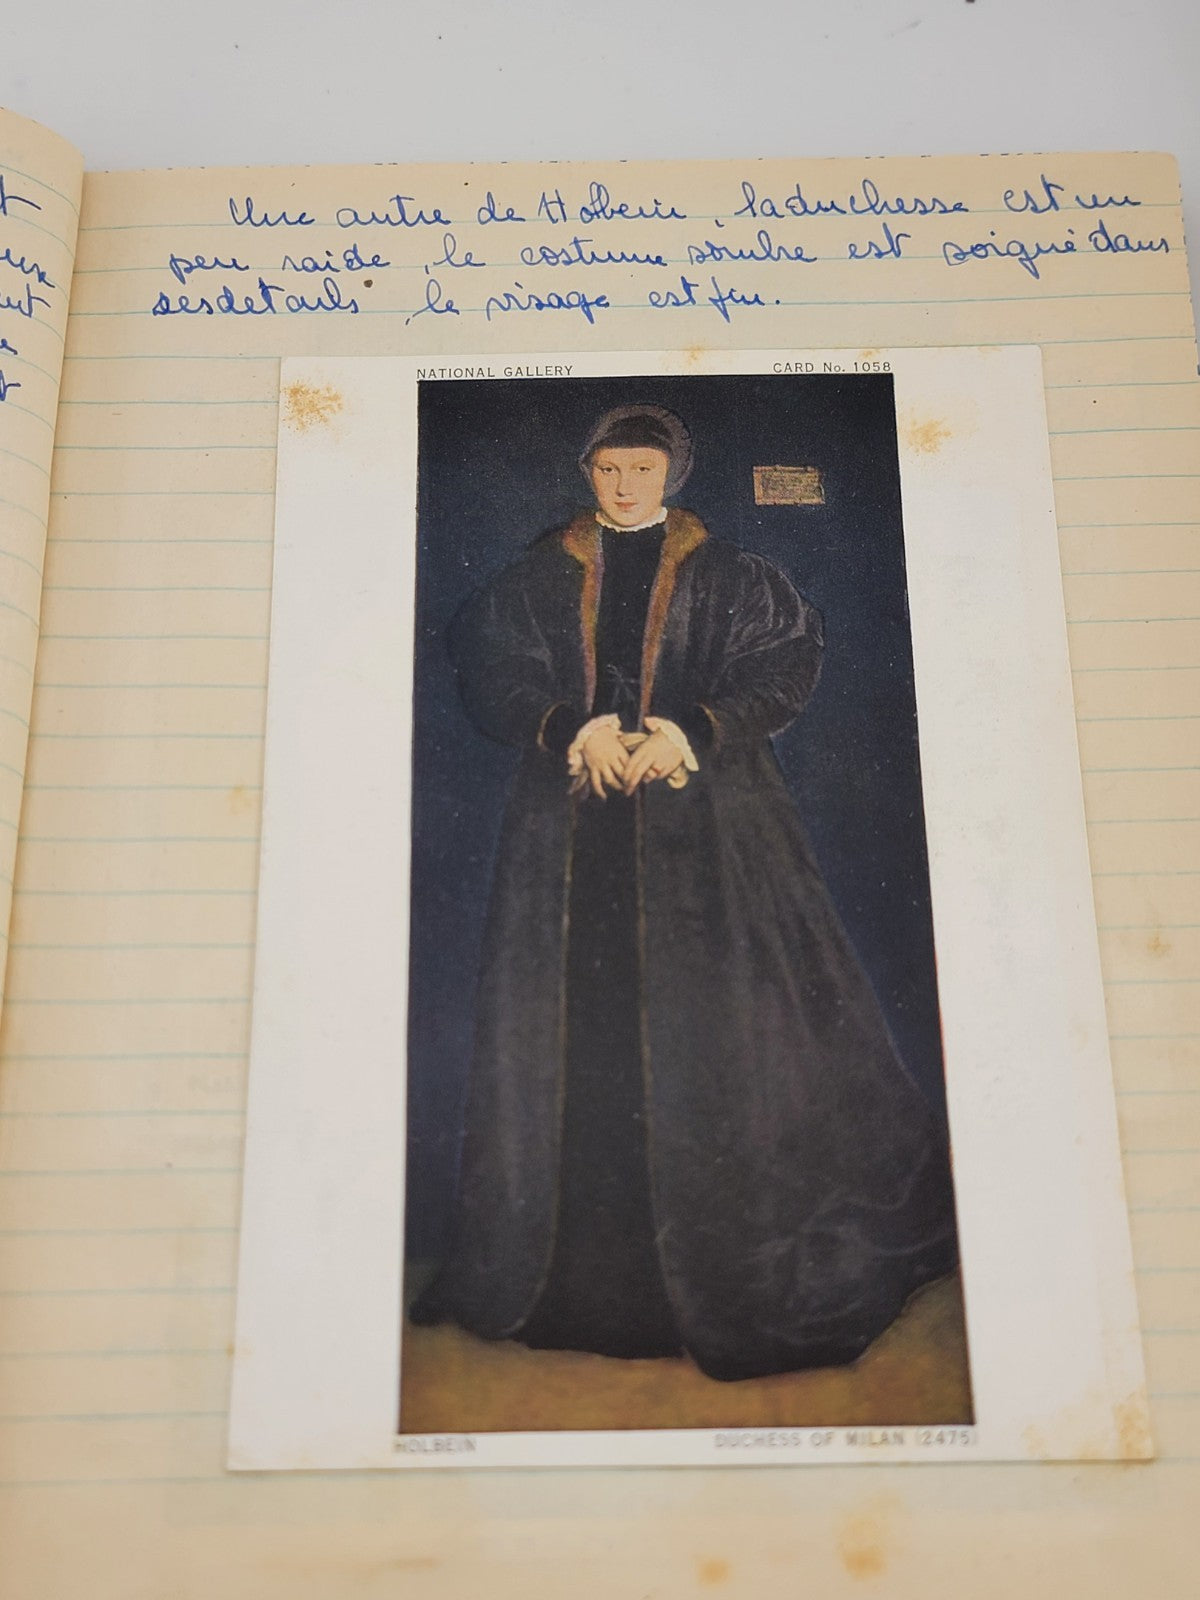 Une autre de Holbein, la duchesse est un
peu raide, le costume sombre est soigné dans
ses details, le visage est fin.
NATIONAL GALLERY CARD No. 1058
HOLBEIN DUCHESS OF MILAN (2475)